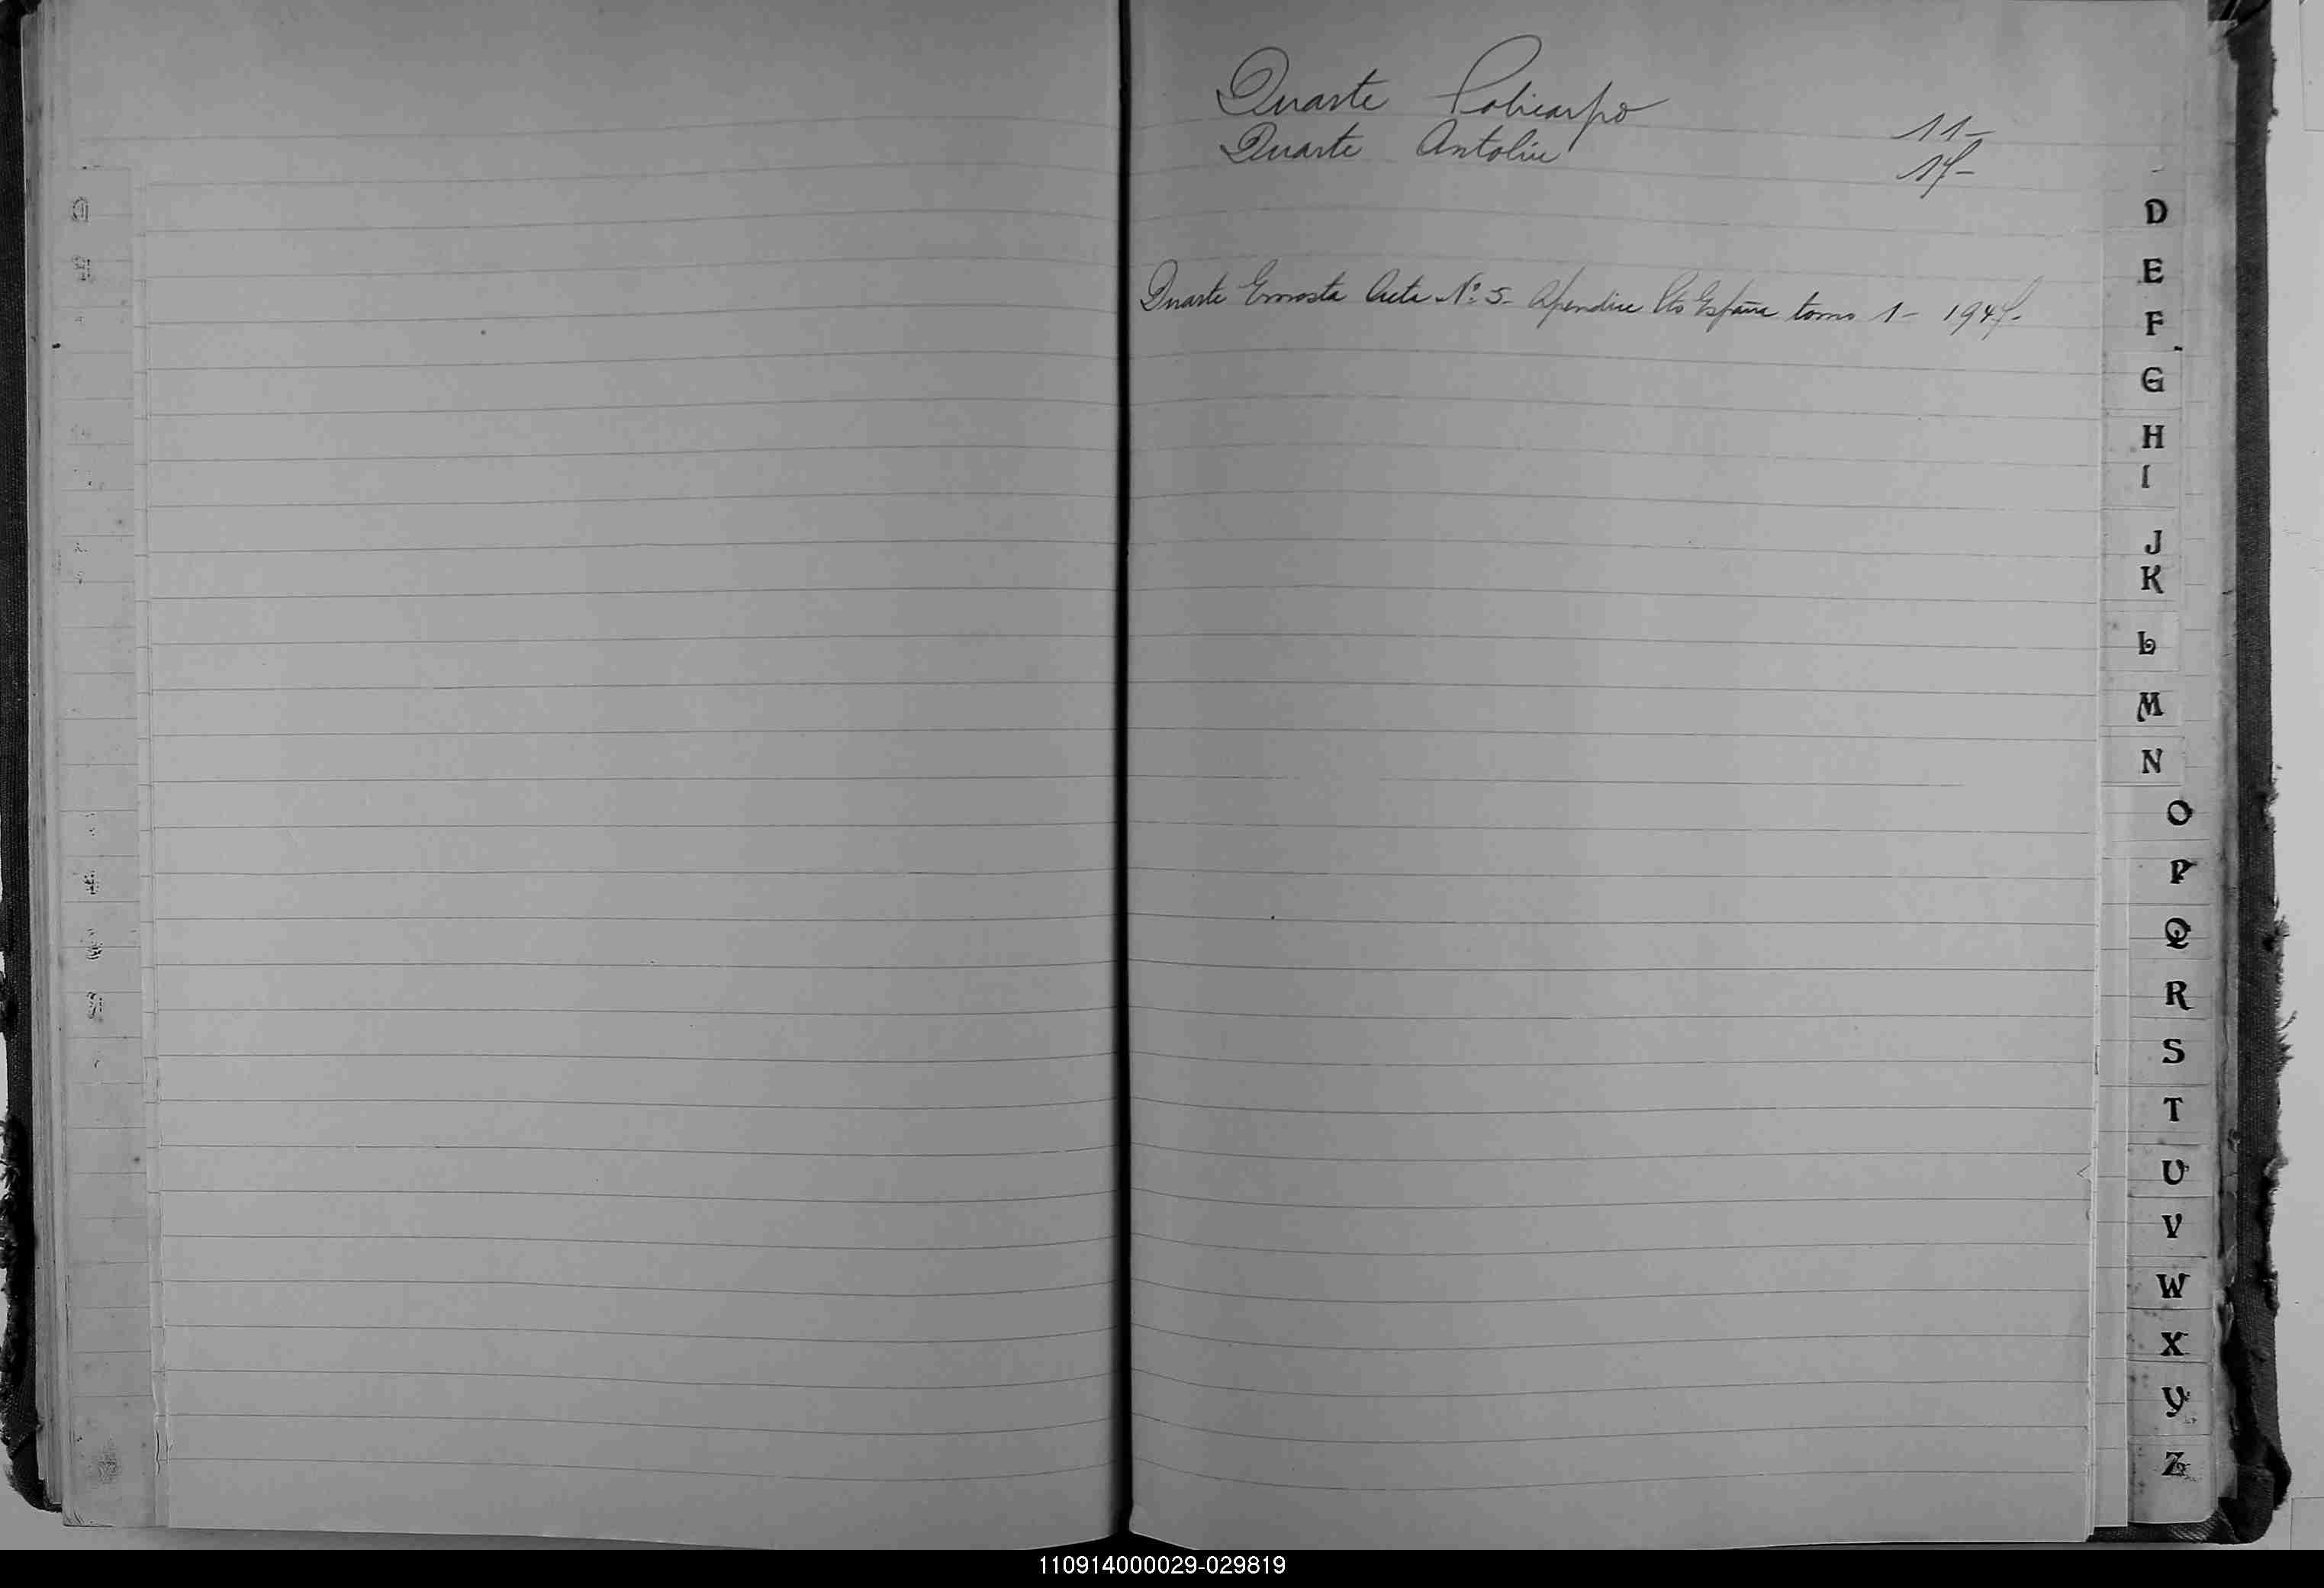 Duarte Policarpo 11-
Duarte Antolin 17-
Duarte Ernesta Acta Nº 5- Apendice Pto España tomo 1- 1947.
D
E
F
G
H
I
J
K
L
M
N
O
P
Q
R
S
T
U
V
W
X
Y
Z
110914000029-029819